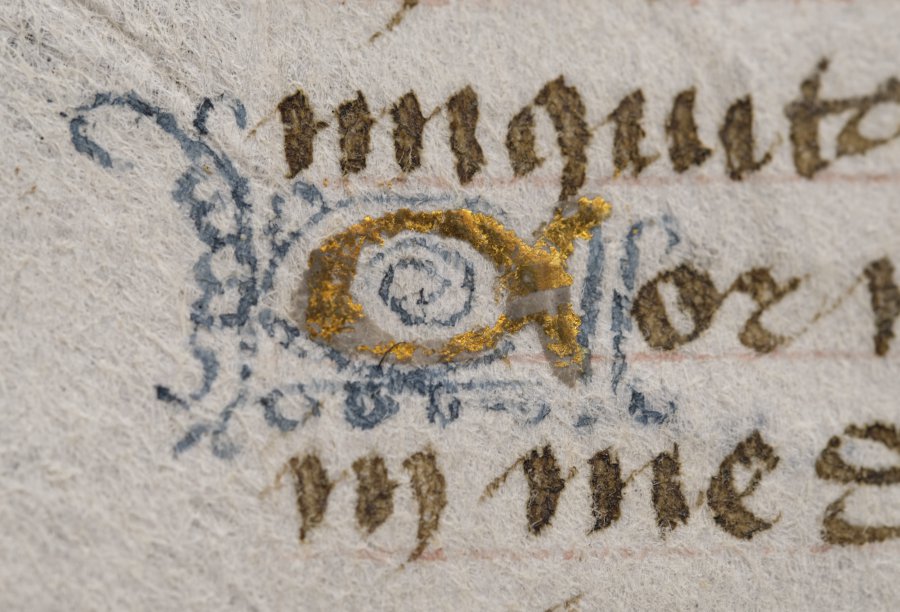 iniquita
Cor
in me